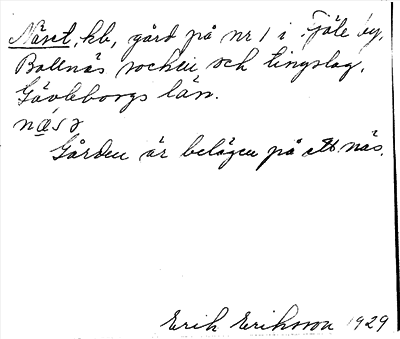 Näset, kb, gård på nr 1 i Fjäle by,
Bollnäs socken och tingslag,
Gävleborgs län.
næsə
Gården är belägen på ett näs.
Erik Eriksson 1929